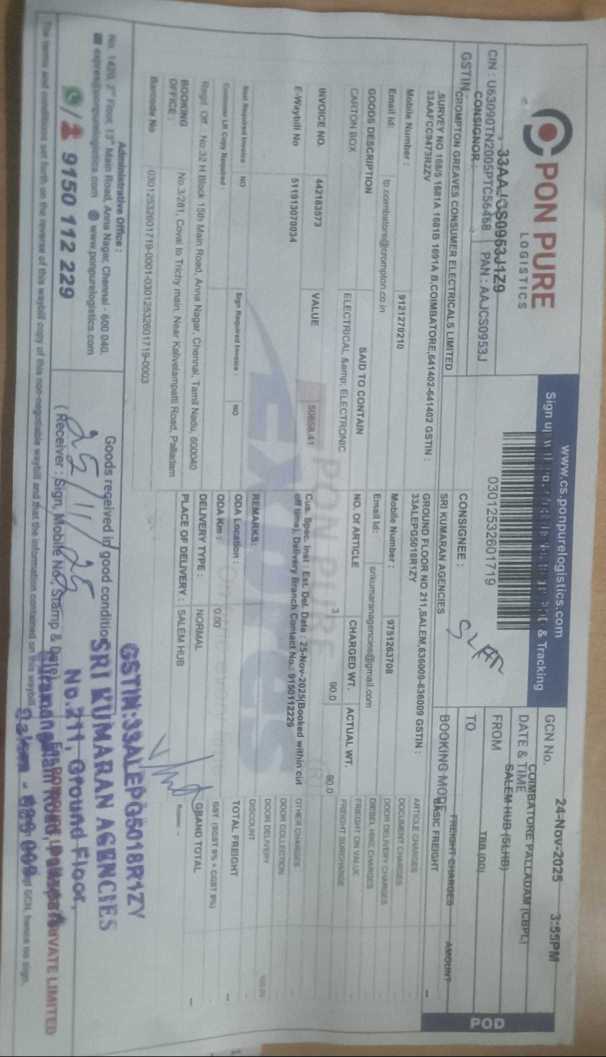 PON PURE
LOGISTICS
33AAJCS0953J1Z9
CIN : U63090TN2005PTC56458 PAN : AAJCS0953J
www.cs.ponpurelogistics.com
Sign up & Tracking
03012532601719
GCN No.
DATE & TIME 24-Nov-2025 3:55PM
FROM COIMBATORE PALLADAM (CBPL)
TO SALEM HUB (SLHB)
BOOKING MODE TBB (00)
POD
GSTIN
CONSIGNOR :
CROMPTON GREAVES CONSUMER ELECTRICALS LIMITED
,SURVEY NO 168/5 1681A 1681B 1691A B,COIMBATORE,641402-641402 GSTIN :
33AAFCC9473R2ZV
Mobile Number : 9121270210
Email Id: lp.coimbatore@crompton.co.in
GOODS DESCRIPTION SAID TO CONTAIN
CARTON BOX ELECTRICAL &amp; ELECTRONIC
INVOICE NO. VALUE
442183573 50858.41
E-Waybill No 511913070034
Next Required Invoice NO Sign Required Invoice : NO
Consignor LR Copy Required
Regd. Off No:32 H Block 15th Main Road, Anna Nagar, Chennai, Tamil Nadu, 600040
BOOKING OFFICE : No.3/281, Covai to Trichy main, Near Kalivelampatti Road, Palladam
Barcode No 03012532601719-0001-03012532601719-0003
CONSIGNEE :
SRI KUMARAN AGENCIES
GROUND FLOOR NO 211,SALEM,636009-636009 GSTIN :
33ALEPG5018R1ZY
Mobile Number : 9751263708
Email Id: srikumaranagencies@gmail.com
NO. Of ARTICLE CHARGED WT. ACTUAL WT.
3 90.0 90.0
Cus. Spec. Inst : Est. Del. Date : 25-Nov-2025(Booked within cut
off time), Delivery Branch Contact No.: 9150112229
REMARKS:
ODA Location :
ODA Km : 0.00
DELIVERY TYPE : NORMAL
PLACE OF DELIVERY : SALEM HUB
FREIGHT CHARGES AMOUNT
BASIC FREIGHT
ARTICLE CHARGES
DOCUMENT CHARGES
DOOR DELIVERY CHARGES
DIESEL HIKE CHARGES
FREIGHT ON VALUE
FREIGHT SURCHARGE
OTHER CHARGES
DOOR COLLECTION
DOOR DELIVERY
DISCOUNT
TOTAL FREIGHT
GST (SGST 9% + CGST 9%)
GRAND TOTAL
PON PURE
Express
Administrative Office :
No. 1420, 2nd Floor, 13th Main Road, Anna Nagar, Chennai - 600 040.
express@ponpurelogistics.com www.ponpurelogistics.com
9150 112 229
Goods received in good condition
25/11/25
(Receiver : Sign, Mobile No., Stamp & Date)
GSTIN:33ALEPG5018R1ZY
SRI KUMARAN AGENCIES
No.211, Ground Floor,
Salem - 636 009
The terms and conditions set forth on the reverse of this waybill copy of this non-negotiable waybill and that the information contained on this waybill